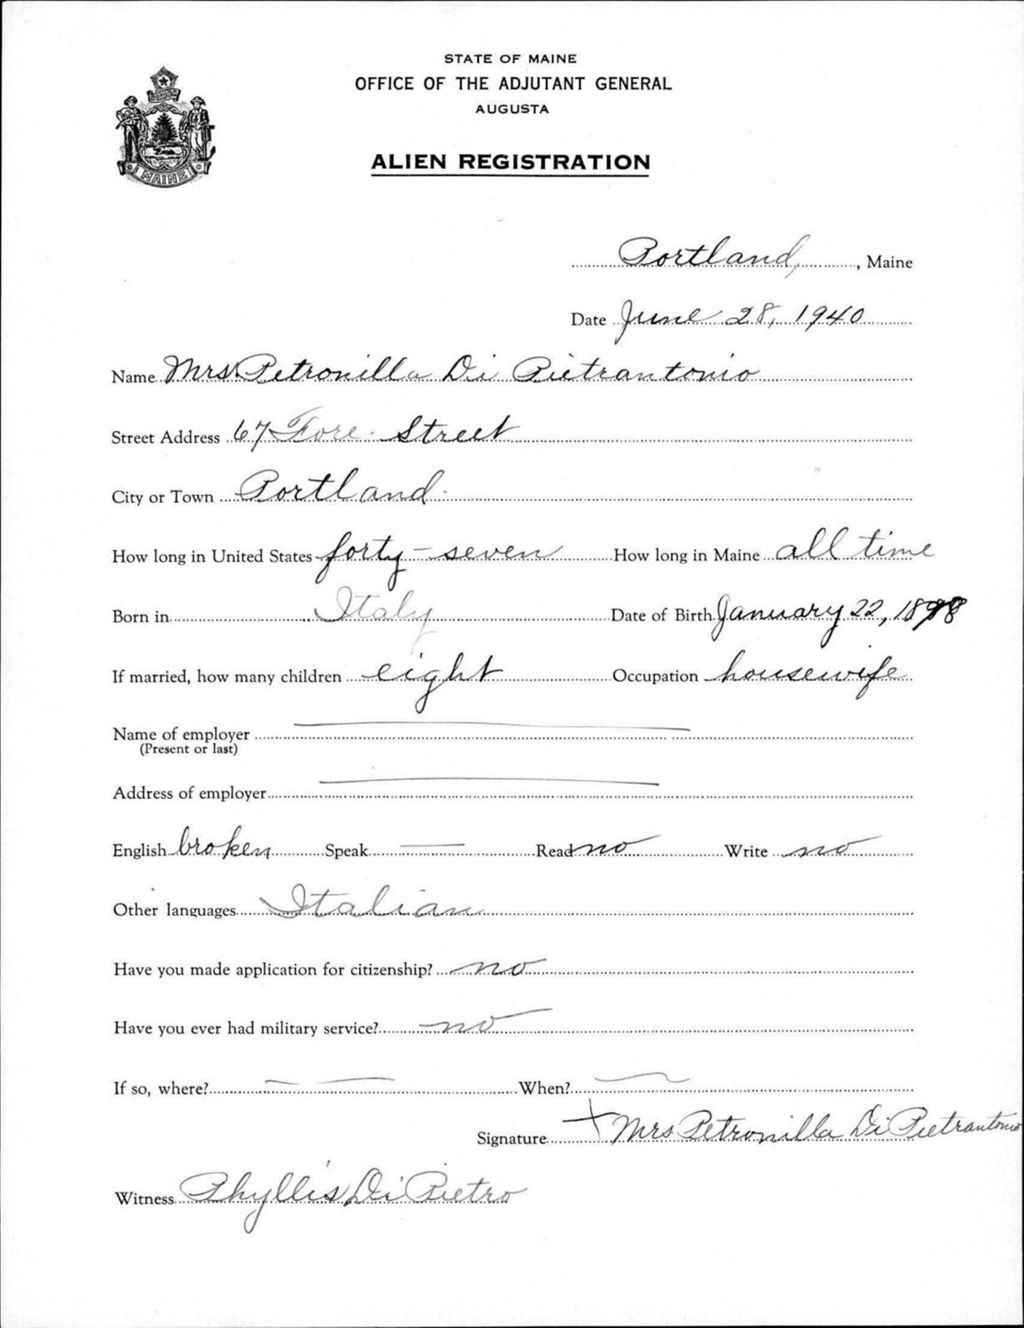 STATE OF MAINE
OFFICE OF THE ADJUTANT GENERAL
AUGUSTA
ALIEN REGISTRATION
MAINE
Portland, , Maine
Date June 28, 1940
Name Mrs Petronilla Di Pietrantonio
Street Address 67 Fore Street
City or Town Portland
How long in United States forty-seven How long in Maine all time
Born in Italy Date of Birth January 22,
If married, how many children eight Occupation housewife
Name of employer
(Present or last)
Address of employer
English broken Speak — Read no Write no
Other languages Italian
Have you made application for citizenship? no
Have you ever had military service? no
If so, where? — — When? —
Signature + Mrs Petronilla Di Pietrantonio
Witness Phyllis Di Pietro